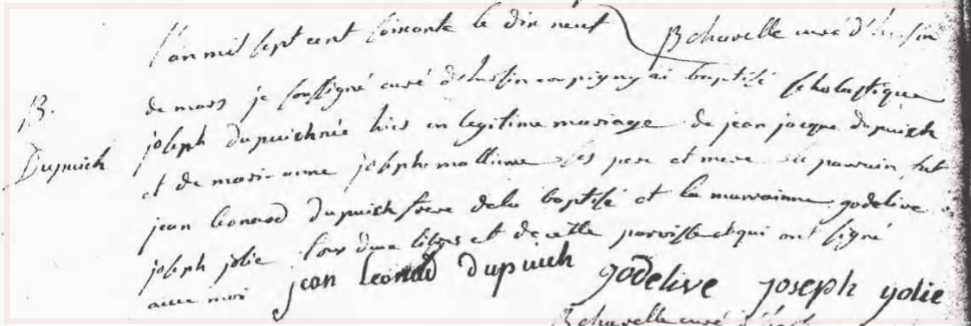 B chavelle curé d'hulfin
l'an mil sept cent soixante le dix neuf
B.
Dupuich
de mars je soussigné curé d'hulsin coupigny ai baptisé scholastique
joseph dupuich née hier en legitime mariage de jean jacque dupuich
et de marie anne joseph mallinne ses pere et mere le parrain fut
jean leonard dupuich frere de la baptisé et la marrainne godelive
joseph jolie tous deux libres et de cette paroisse et qui ont signé
avec moi jean leonard dupuich godelive joseph yolie
B chavelle curé